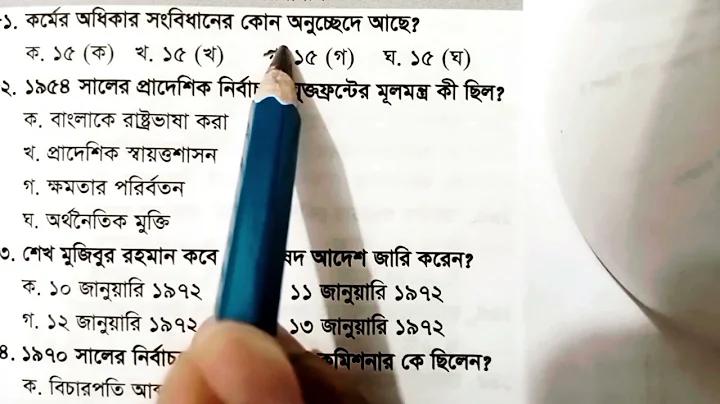 ১. কর্মের অধিকার সংবিধানের কোন অনুচ্ছেদে আছে?
ক. ১৫ (ক) খ. ১৫ (খ) ১৫ (গ) ঘ. ১৫ (ঘ)
২. ১৯৫৪ সালের প্রাদেশিক যুক্তফ্রন্টের মূলমন্ত্র কী ছিল?
ক. বাংলাকে রাষ্ট্রভাষা করা
খ. প্রাদেশিক স্বায়ত্তশাসন
গ. ক্ষমতার পরির্বতন
ঘ. অর্থনৈতিক মুক্তি
৩. শেখ মুজিবুর রহমান কবে আদেশ জারি করেন?
ক. ১০ জানুয়ারি ১৯৭২ ১১ জানুয়ারি ১৯৭২
গ. ১২ জানুয়ারি ১৯৭২ ১৩ জানুয়ারি ১৯৭২
৪. ১৯৭০ সালের কমিশনার কে ছিলেন?
ক. বিচারপতি